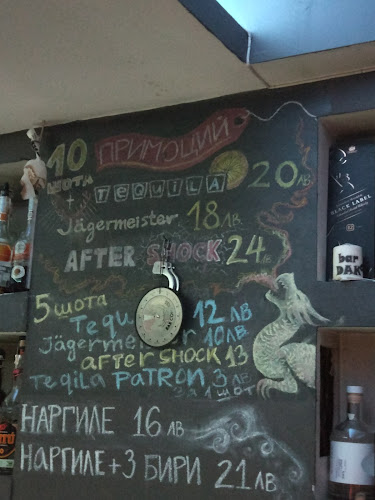 ПРИМОЦИЙ
10 шота
+ TEQUILA 20 лв
Jägermeister 18 лв.
AFTER SHOCK 24 лв
5 шота
Tequ 12 лв
Jägermeister 10 лв.
after SHOCK 13
Teqila PaTRON 3 лв.
за 1 шот
НАРГИЛЕ 16 лв
НАРГИЛЕ+3 БИРИ 21 лв.
BLACK LABEL
bar
DAK